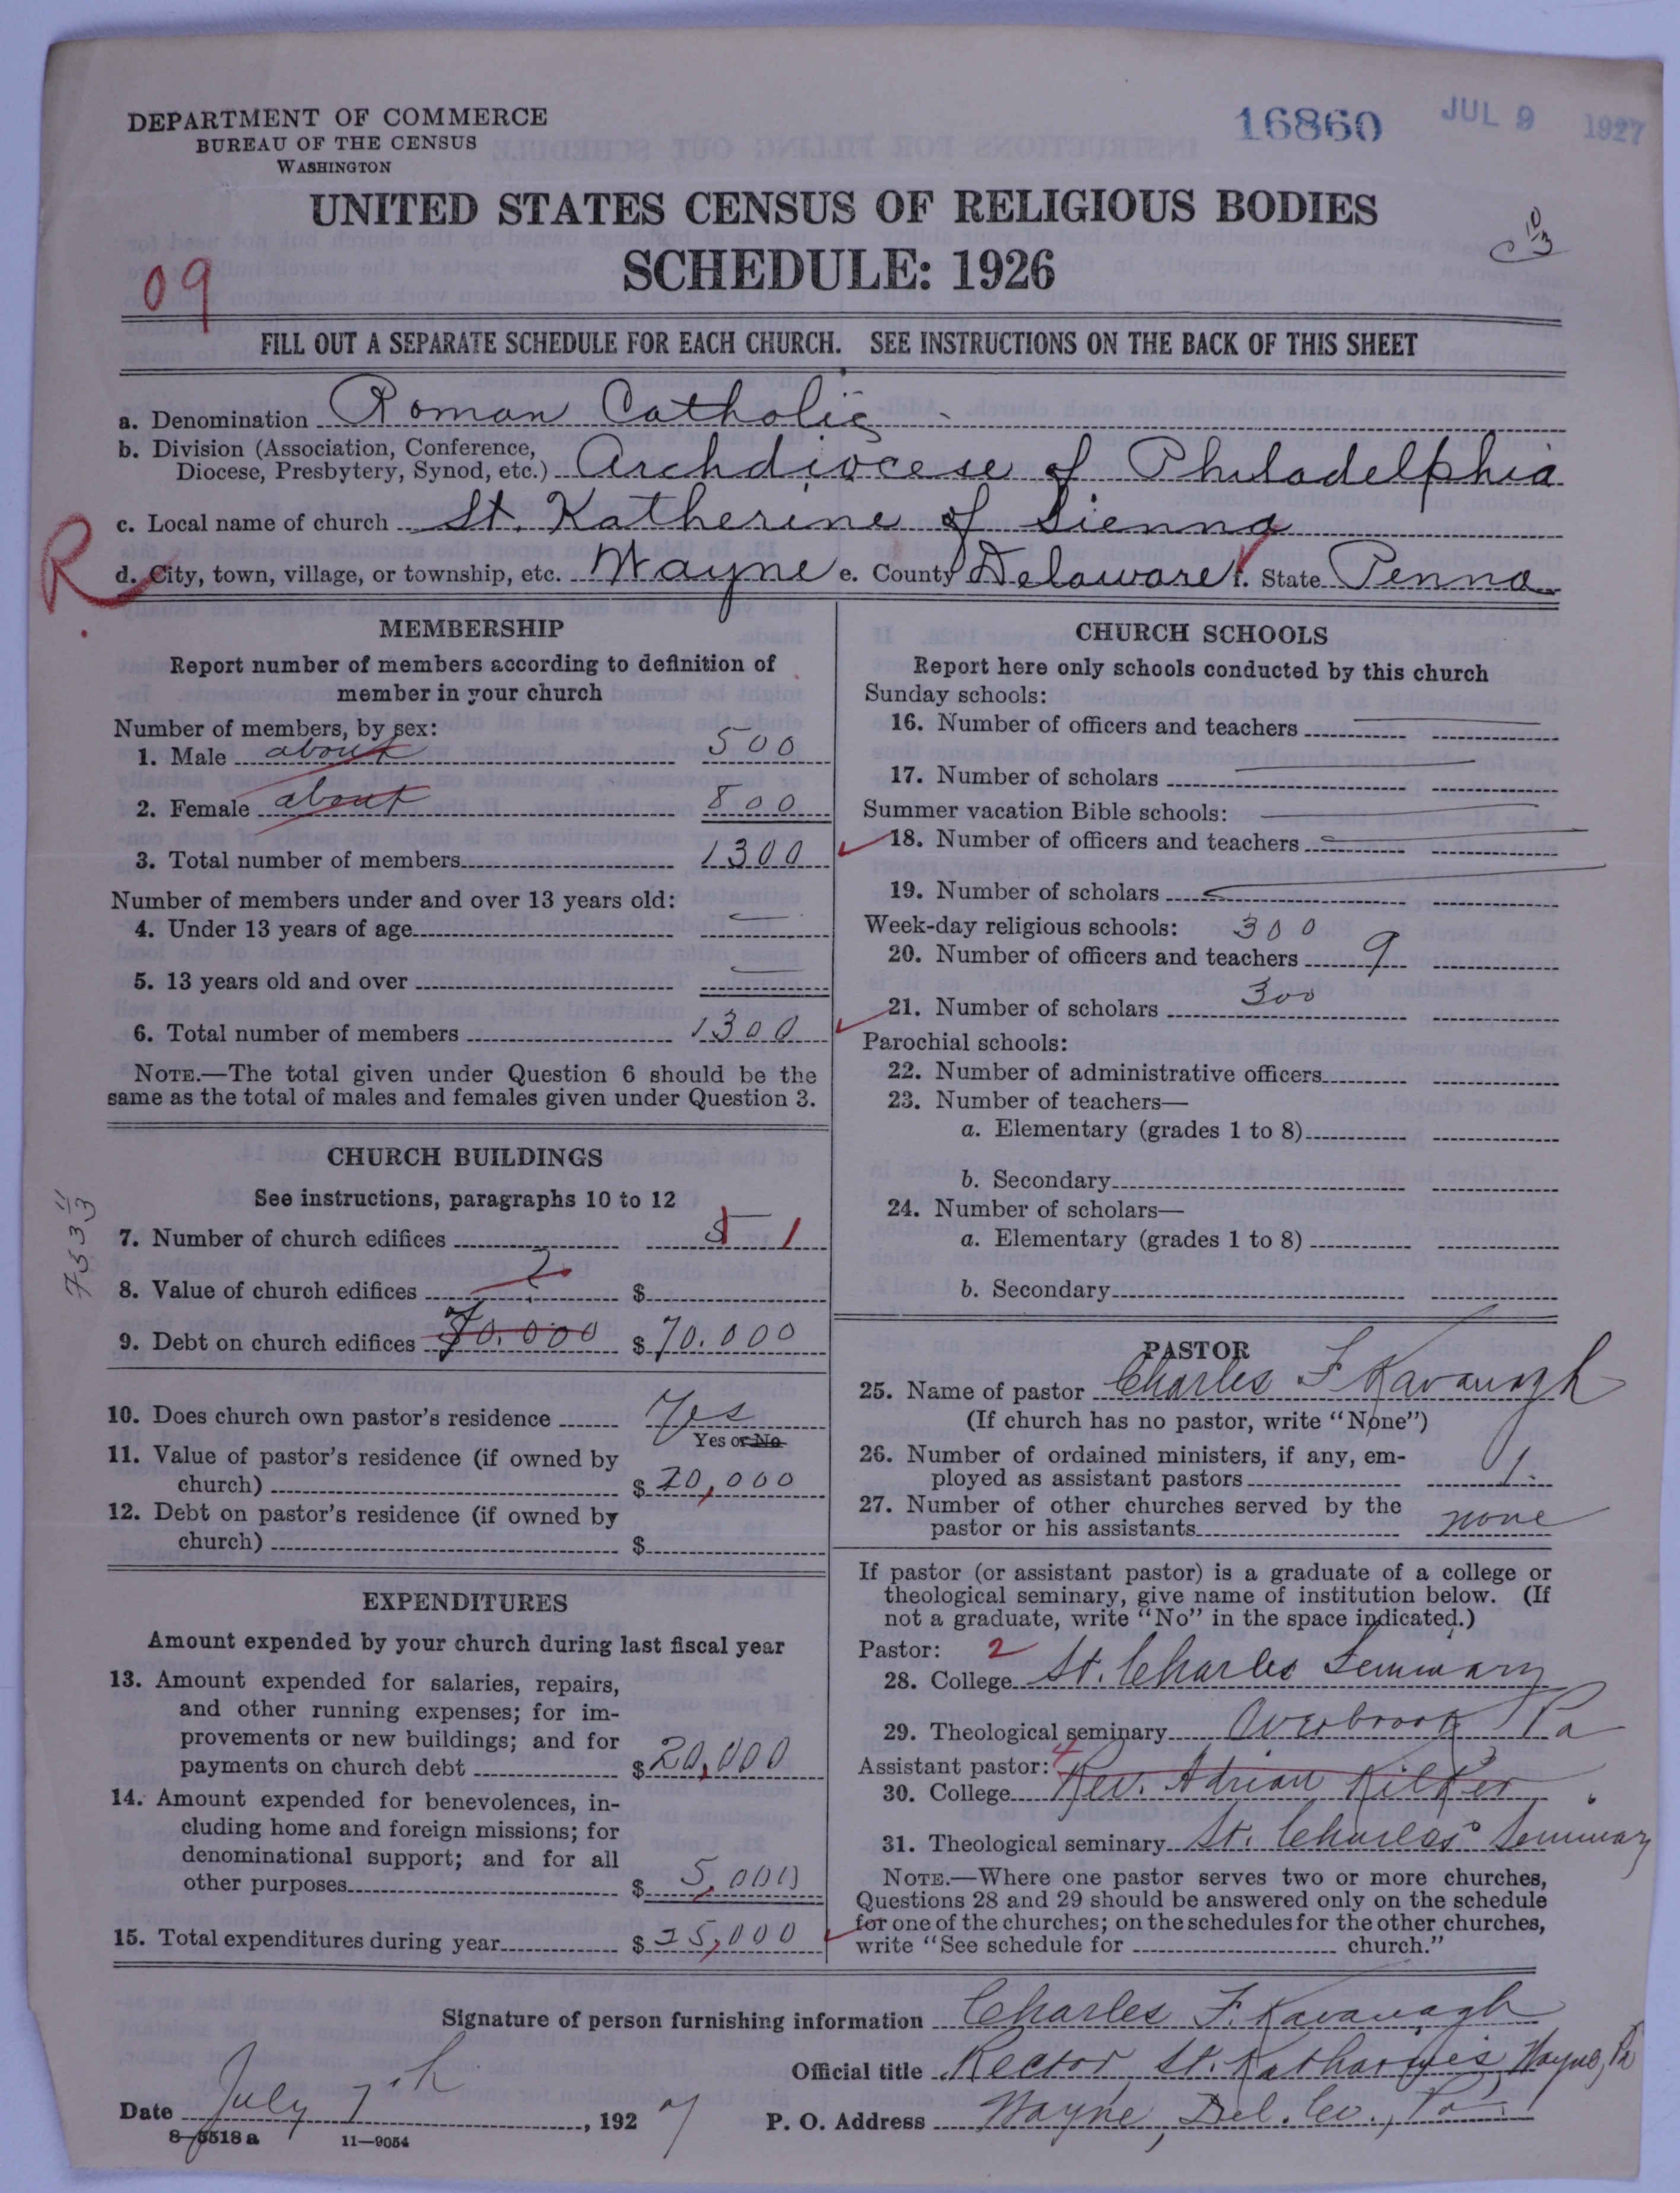 DEPARTMENT OF COMMERCE
BUREAU OF THE CENSUS
WASHINGTON
16860 JUL 9 1927
UNITED STATES CENSUS OF RELIGIOUS BODIES
SCHEDULE: 1926
09
10
3
FILL OUT A SEPARATE SCHEDULE FOR EACH CHURCH. SEE INSTRUCTIONS ON THE BACK OF THIS SHEET
a. Denomination Roman Catholic
b. Division (Association, Conference, Diocese, Presbytery, Synod, etc.) Archdiocese of Philadelphia
c. Local name of church St. Katherine of Sienna
R
d. City, town, village, or township, etc. Wayne e. County Delaware f. State Penna
MEMBERSHIP
Report number of members according to definition of
member in your church
Number of members, by sex:
1. Male about 500
2. Female about 800
3. Total number of members 1300
Number of members under and over 13 years old:
4. Under 13 years of age —
5. 13 years old and over —
6. Total number of members 1300
NOTE.—The total given under Question 6 should be the
same as the total of males and females given under Question 3.
CHURCH BUILDINGS
See instructions, paragraphs 10 to 12
7. Number of church edifices 5 1
8. Value of church edifices ? $
9. Debt on church edifices 70.000 $ 70.000
753 11
3
10. Does church own pastor's residence Yes
Yes or No
11. Value of pastor's residence (if owned by
church) $ 20,000
12. Debt on pastor's residence (if owned by
church) $
EXPENDITURES
Amount expended by your church during last fiscal year
13. Amount expended for salaries, repairs,
and other running expenses; for im-
provements or new buildings; and for
payments on church debt $ 20,000
14. Amount expended for benevolences, in-
cluding home and foreign missions; for
denominational support; and for all
other purposes $ 5,000
15. Total expenditures during year $ 25,000
CHURCH SCHOOLS
Report here only schools conducted by this church
Sunday schools:
16. Number of officers and teachers —
17. Number of scholars —
Summer vacation Bible schools: —
18. Number of officers and teachers —
19. Number of scholars —
Week-day religious schools: 300
20. Number of officers and teachers 9
21. Number of scholars 300
Parochial schools:
22. Number of administrative officers
23. Number of teachers—
a. Elementary (grades 1 to 8)
b. Secondary
24. Number of scholars—
a. Elementary (grades 1 to 8)
b. Secondary
PASTOR
25. Name of pastor Charles F Kavanagh
(If church has no pastor, write "None")
26. Number of ordained ministers, if any, em-
ployed as assistant pastors 1.
27. Number of other churches served by the
pastor or his assistants none
If pastor (or assistant pastor) is a graduate of a college or
theological seminary, give name of institution below. (If
not a graduate, write "No" in the space indicated.)
Pastor: 2
28. College St. Charles Seminary
29. Theological seminary Overbrook Pa
Assistant pastor: 4
30. College Rev. Adrian Kilker
31. Theological seminary St. Charles Seminary
NOTE.—Where one pastor serves two or more churches,
Questions 28 and 29 should be answered only on the schedule
for one of the churches; on the schedules for the other churches,
write "See schedule for church."
Signature of person furnishing information Charles F. Kavanagh
Official title Rector, St. Katharine's, Wayne, Pa
Date July 7th, 1927 P. O. Address Wayne, Del. Co., Pa.
8-5518 a 11-9054